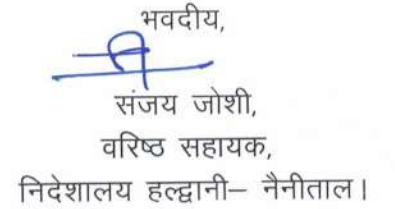 भवदीय,
संजय जोशी,
वरिष्ठ सहायक,
निदेशालय हल्द्वानी– नैनीताल।